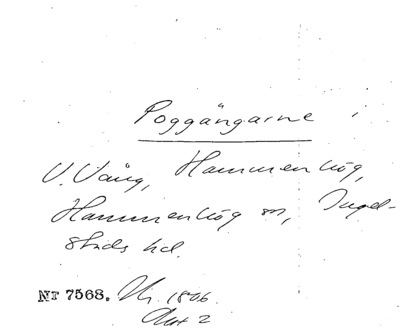 Poggängarne i
V. Vång, Hammenhög,
Hammenhög sn, Ingel-
stads hd.
Nr 7568. Nr. 1806.
Akt 2